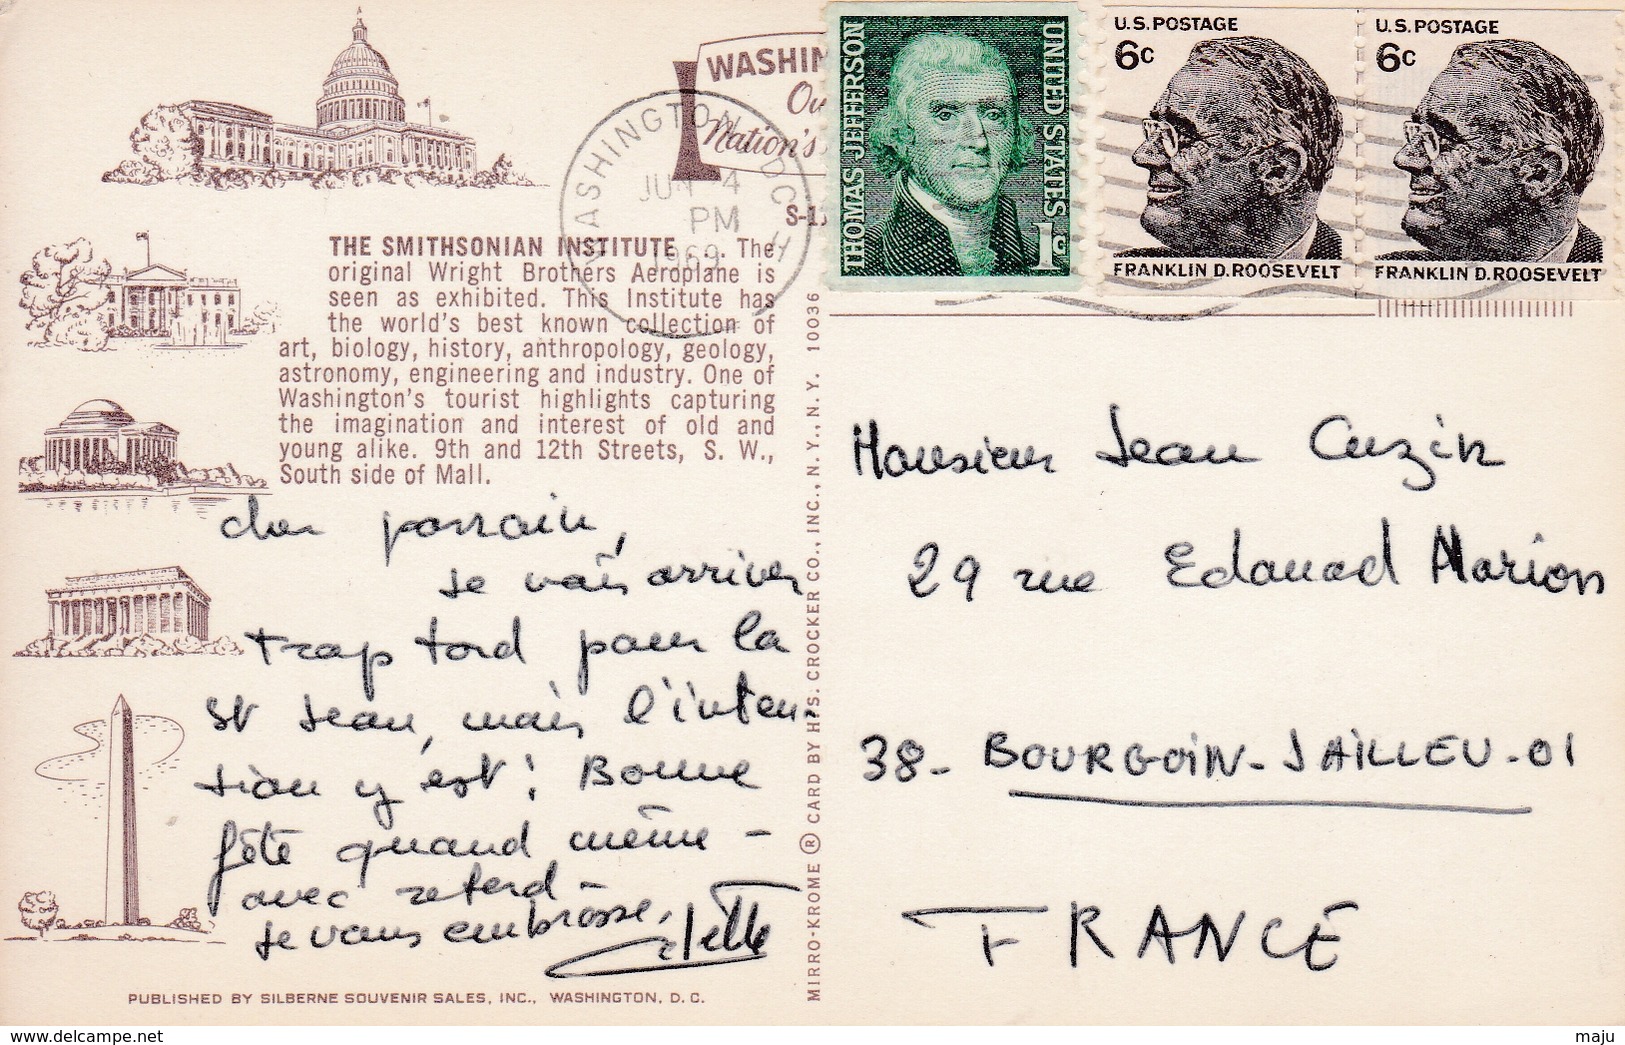 WASHIN
Ou
Nation's
WASHINGTON, D.C.
JUN 4
PM
1969
S-11
THOMAS JEFFERSON
UNITED STATES
1c
U.S. POSTAGE
6c
FRANKLIN D. ROOSEVELT
U.S. POSTAGE
6c
FRANKLIN D. ROOSEVELT
THE SMITHSONIAN INSTITUTE . . . The
original Wright Brothers Aeroplane is
seen as exhibited. This Institute has
the world's best known collection of
art, biology, history, anthropology, geology,
astronomy, engineering and industry. One of
Washington's tourist highlights capturing
the imagination and interest of old and
young alike. 9th and 12th Streets, S. W.,
South side of Mall.
cher parrain,
Je vais arriver
trop tard pour la
St Jean, mais l'inten-
tion y est ! Bonne
fête quand même -
avec retard -
Je vous embrasse.
Colette
PUBLISHED BY SILBERNE SOUVENIR SALES, INC., WASHINGTON, D. C.
MIRRO-KROME ® CARD BY H. S. CROCKER CO., INC., N. Y., N. Y. 10036
Monsieur Jean Cuzin
29 rue Edouard Marion
38 - BOURGOIN - JAILLEU - 01
FRANCE
maju
www.delcampe.net